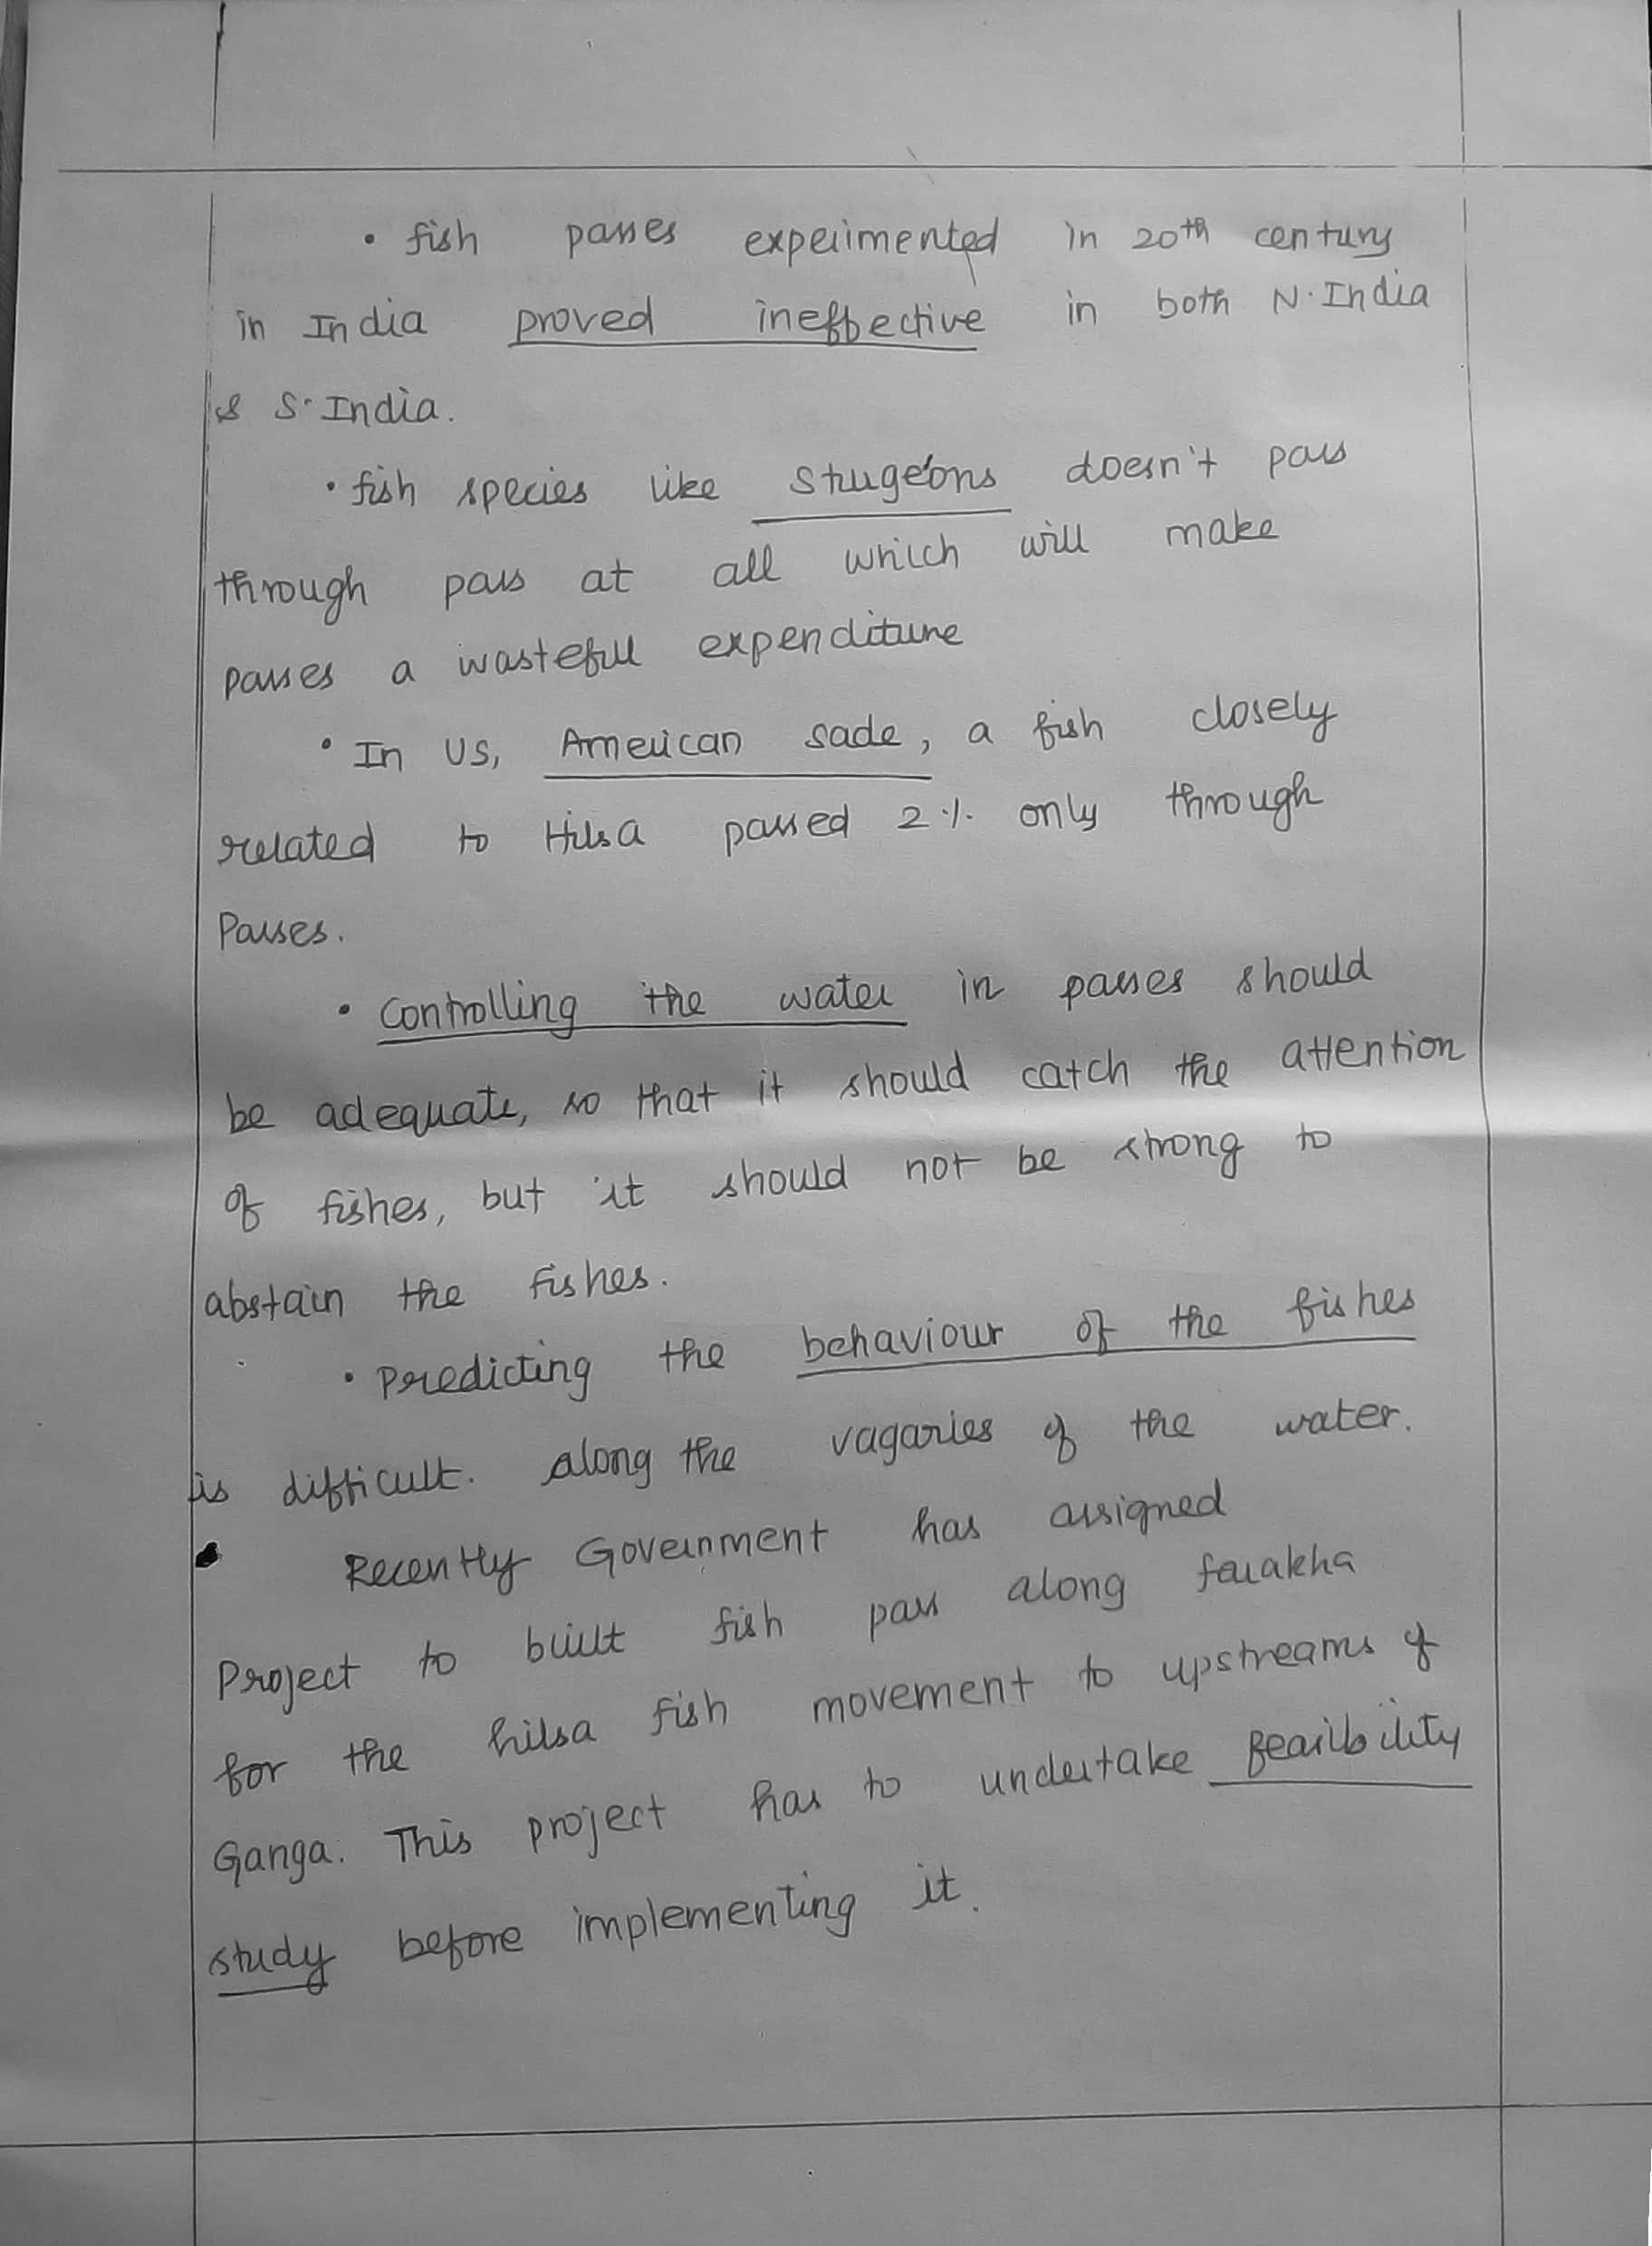 • fish passes experimented in 20th century
in India proved ineffective in both N. India
& S. India.
• fish species like sturgeons doesn't pass
through pass at all which will make
passes a wasteful expenditure
• In US, American sade, a fish closely
related to Hilsa passed 2% only through
Passes.
• Controlling the water in passes should
be adequate, so that it should catch the attention
of fishes, but it should not be strong to
abstain the fishes.
• Predicting the behaviour of the fishes
is difficult. Along the vagaries of the water.
Recently Government has assigned
Project to built fish pass along farakha
for the hilsa fish movement to upstreams of
Ganga. This project has to undertake feasibility
study before implementing it.